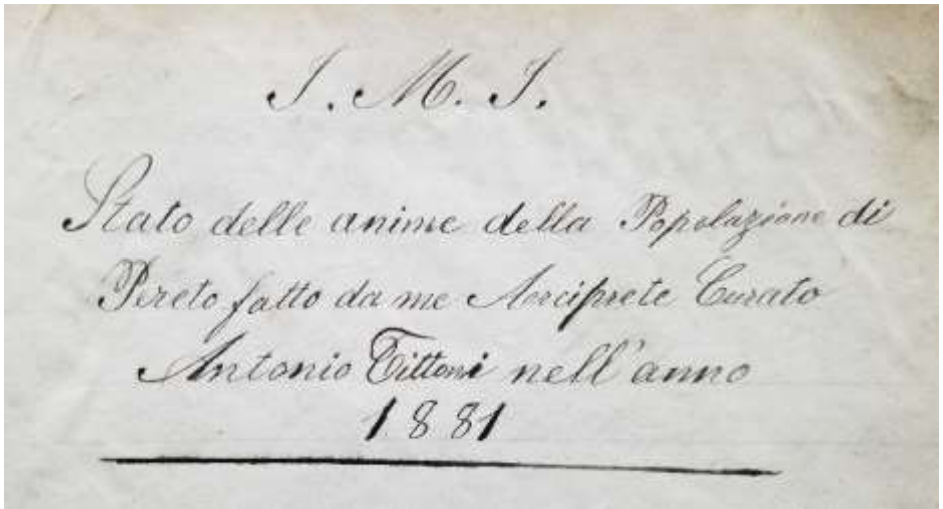 J. M. J.
Stato delle anime della Popolazione di
Pereto fatto da me Arciprete Curato
Antonio Tittoni nell'anno
1881